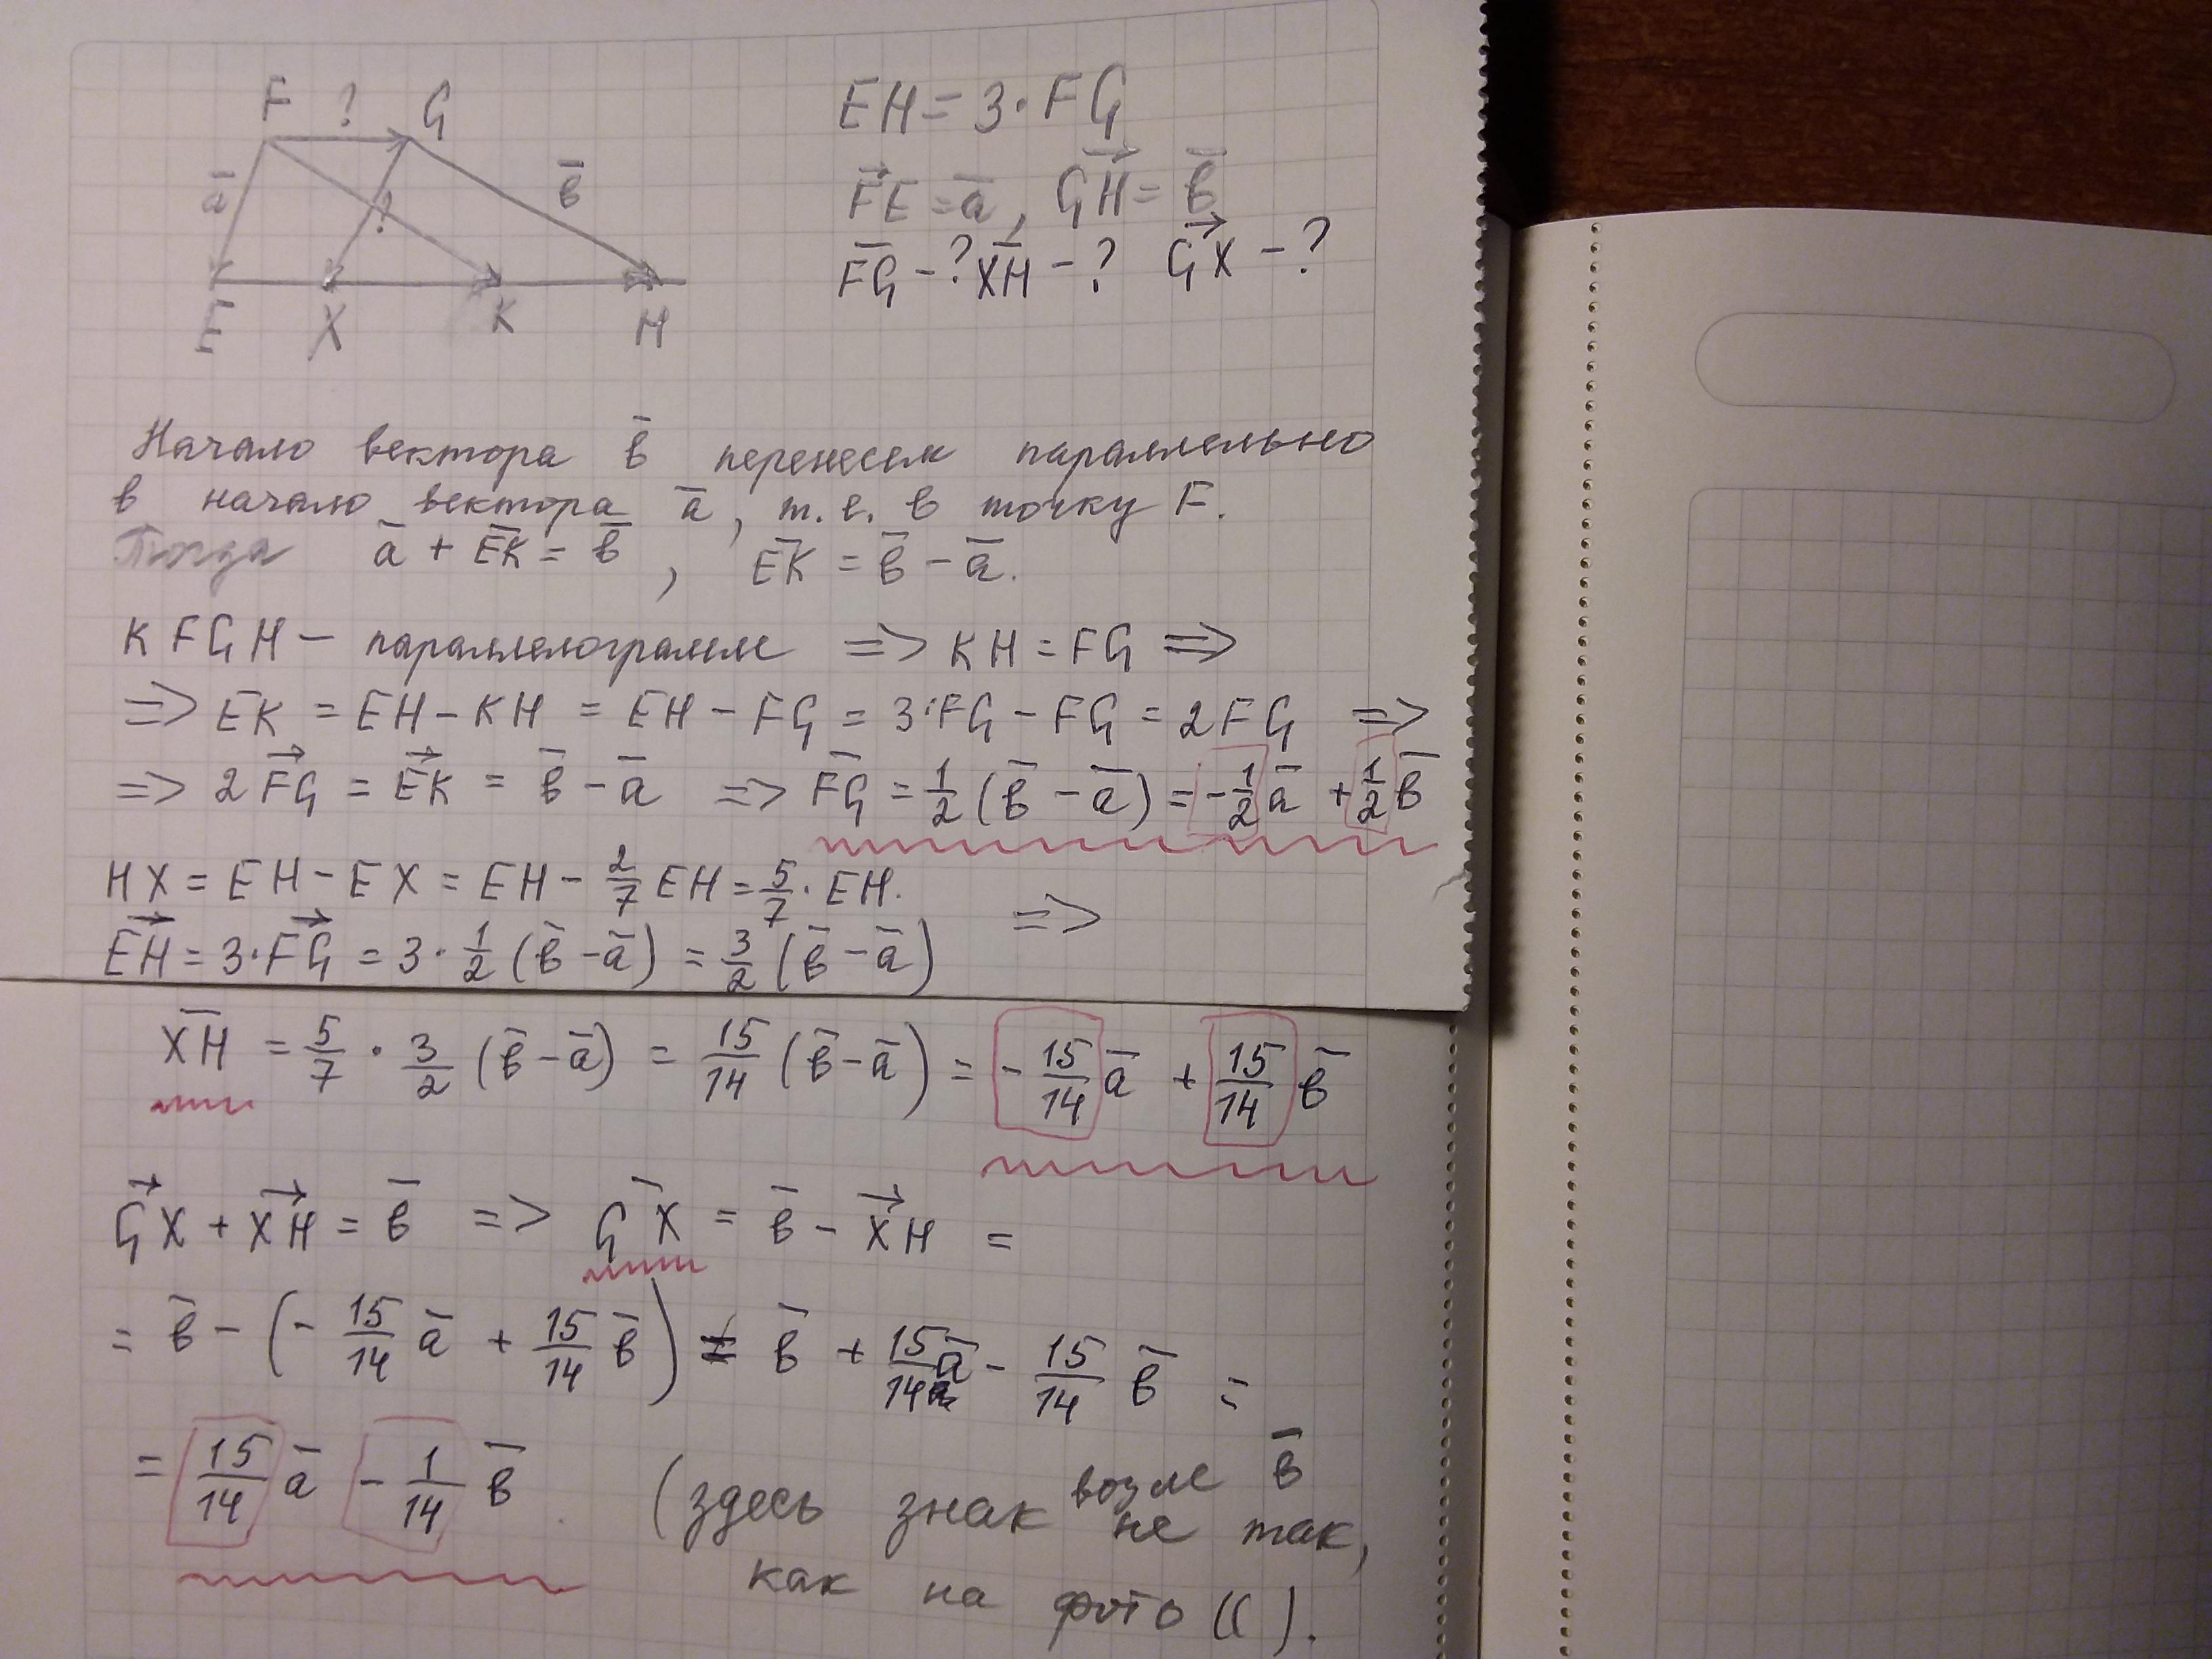 F ? G
ā
?
в̄
E X K H
EH = 3·FG
F⃗E = ā, G⃗H = в̄
F̄G - ? X̄H - ? G⃗X - ?
Начало вектора в̄ перенесем параллельно
в начало вектора ā, т.е. в точку F.
Тогда ā + ĒK = в̄, ĒK = в̄ - ā.
KFGH - параллелограмм => KH = FG =>
=> EK = EH - KH = EH - FG = 3·FG - FG = 2FG =>
=> 2F⃗G = E⃗K = в̄ - ā => F̄G = 1/2 (в̄ - ā) = -1/2 ā + 1/2 в̄
HX = EH - EX = EH - 2/7 EH = 5/7 · EH.
E⃗H = 3·F⃗G = 3 · 1/2 (в̄ - ā) = 3/2 (в̄ - ā) =>
X̄H = 5/7 · 3/2 (в̄ - ā) = 15/14 (в̄ - ā) = - 15/14 ā + 15/14 в̄
G⃗X + X⃗H = в̄ => ḠX = в̄ - X⃗H =
= в̄ - (- 15/14 ā + 15/14 в̄) = в̄ + 15/14 ā - 15/14 в̄ =
= 15/14 ā - 1/14 в̄ (здесь знак возле в̄ не так,
как на фото (( ).